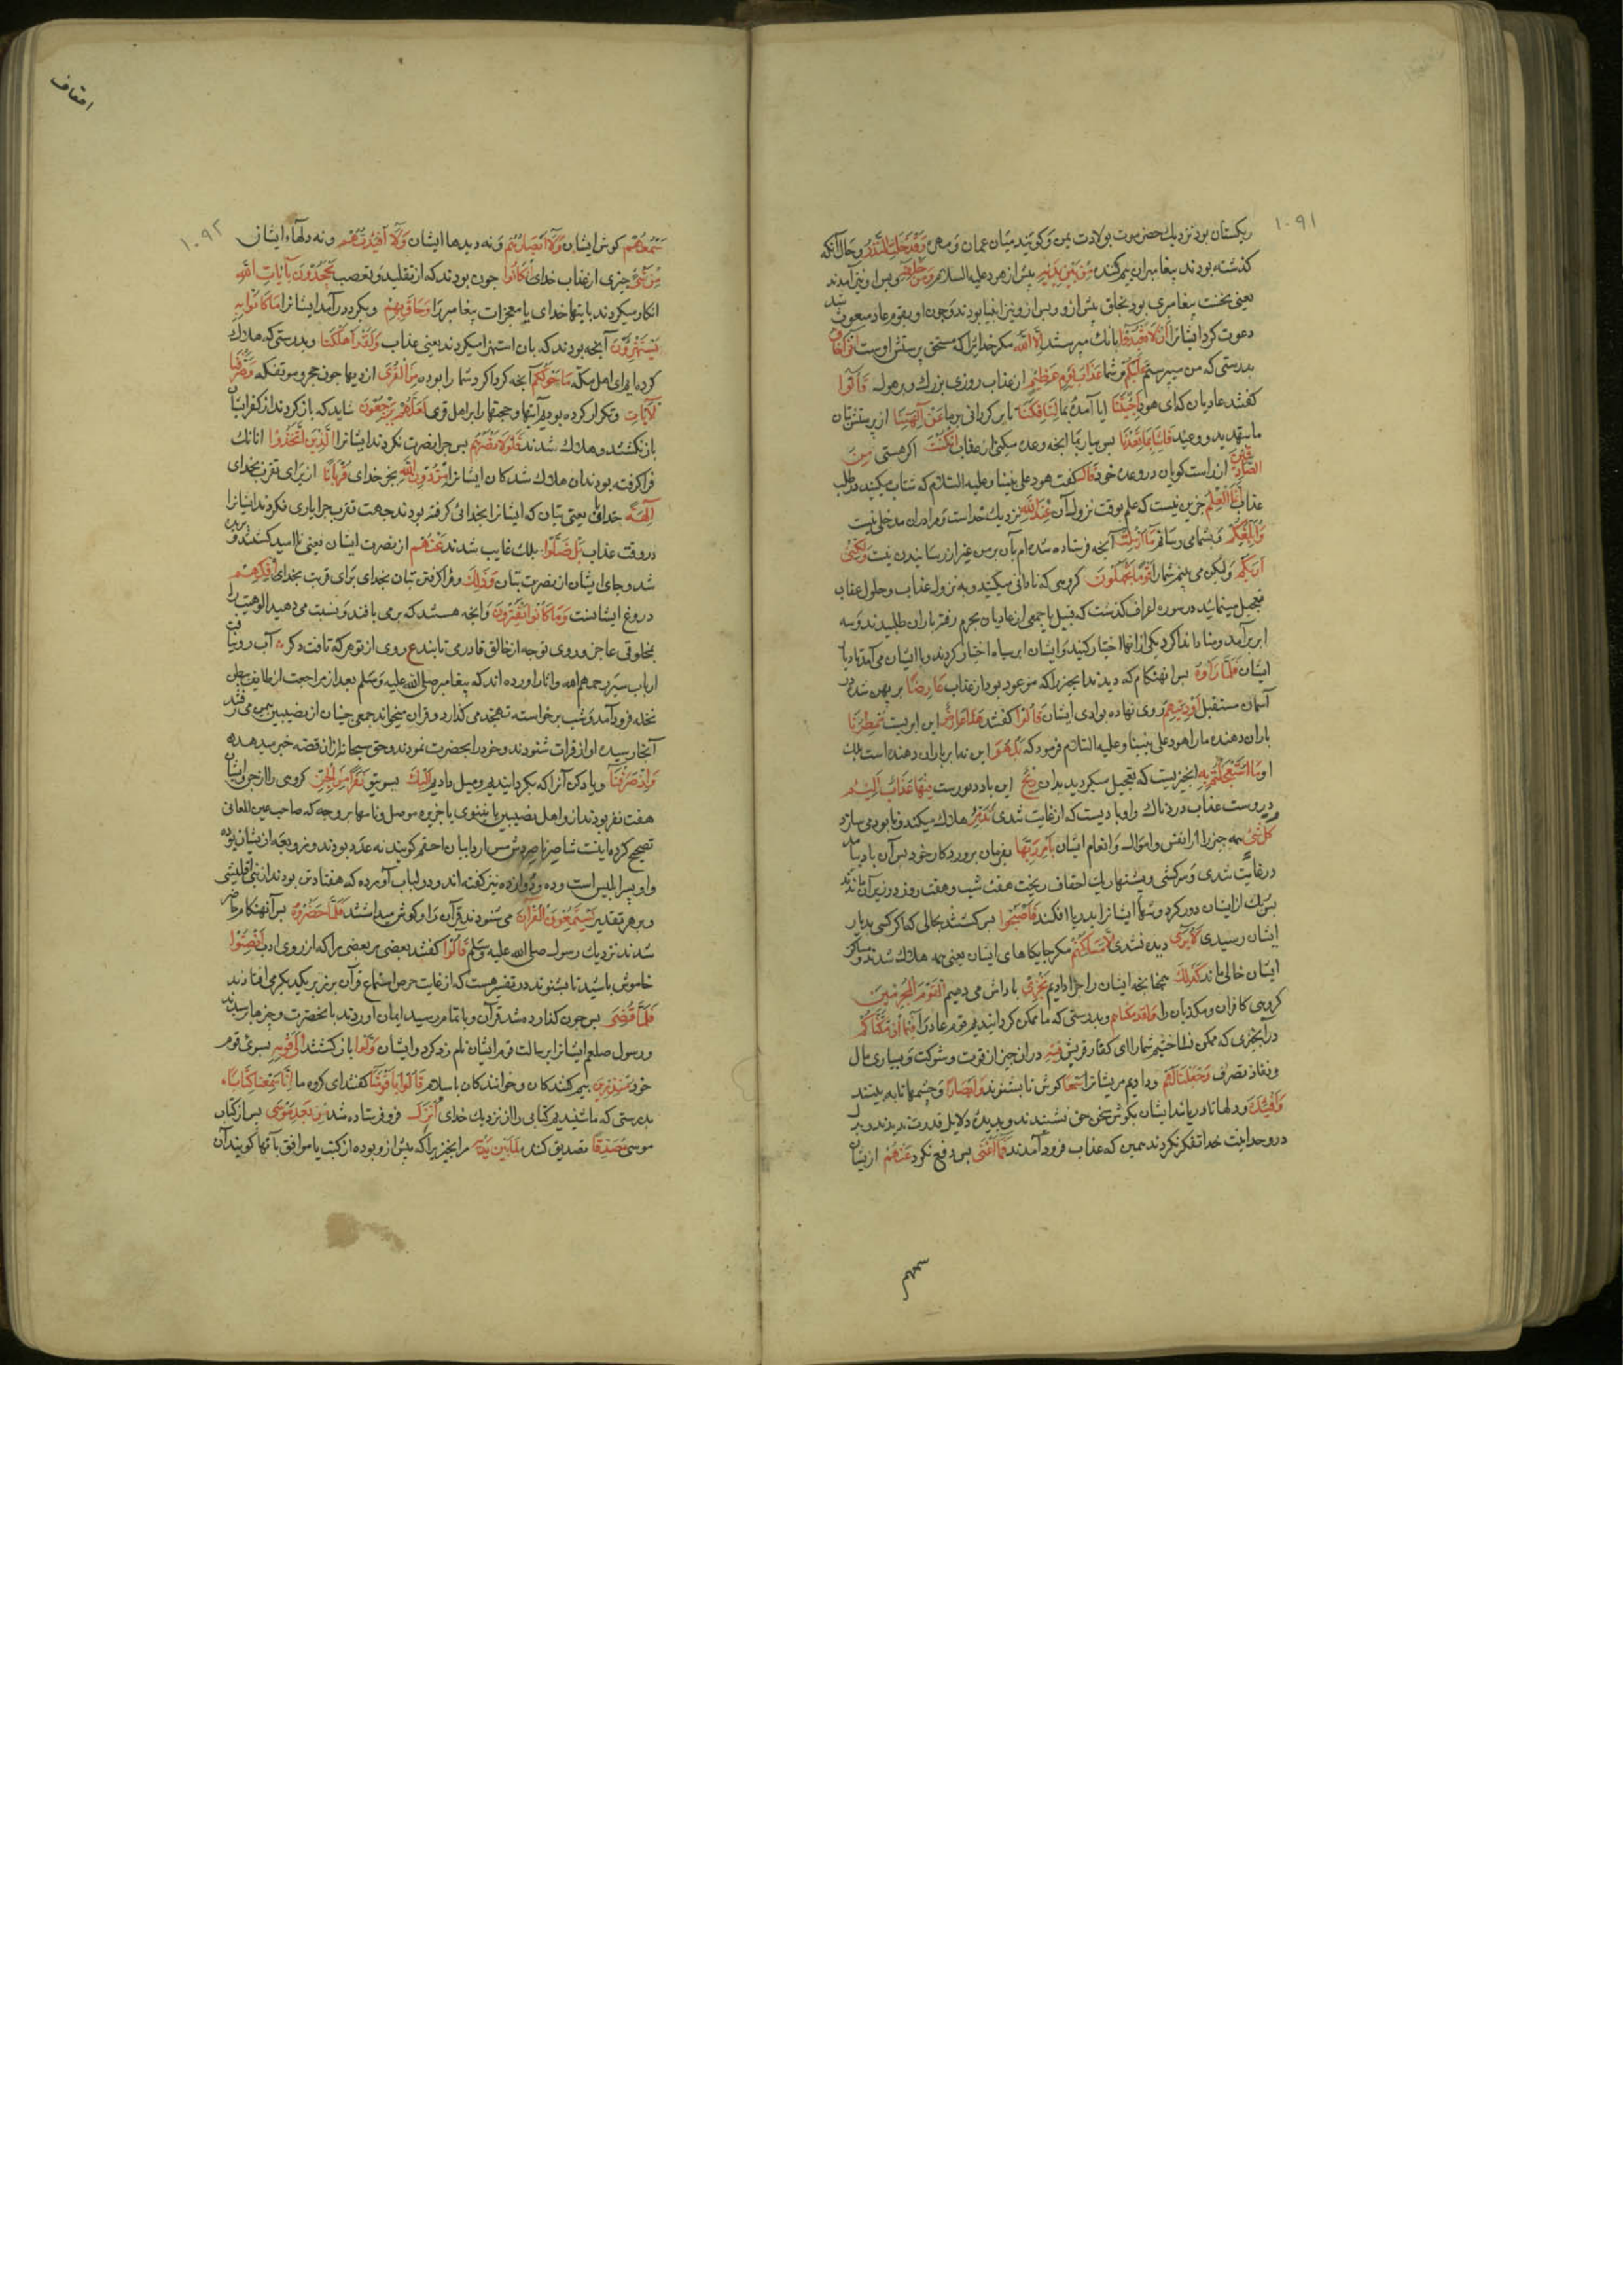 ۱۰۹۱
ریکستان بود نزدیك حضرموت بولادت یمن وکویند میان عمان و مهره وَقَدْ خَلَتِ النُّذُرُ و حال آنکه
کذشته بودند پیغامبران بیم کننده مِنْ بَیْنِ یَدَیْهِ پیش از هود علیه السلام وَمِنْ خَلْفِهِ و پس او نیز آمدند
یعنی نخست پیغامبری بود بخلق پیش ازو و پس ازو نیز انبیا بودند و چون او بقوم عاد مبعوث شد
دعوت کرد ایشانرا اَنْ لَا تَعْبُدُوا بانك مپرستید اِلَّا اللهَ مکر خدایرا که مستحق پرستش اوست اِنِّی اَخَافُ
بدرستی که من میترسم عَلَیْکُمْ بر شما عَذَابَ یَوْمٍ عَظِیمٍ از عذاب روزی بزرك و پر هول قَالُوا
کفتند عادیان که ای هود اَجِئْتَنَا ایا آمدۀ بما لِتَأْفِکَنَا تا برکردانی ما عَنْ آلِهَتِنَا از پرستش بتان
ما بتهدید و وعید فَأْتِنَا بِمَا تَعِدُنَا پس بیار بما انچه وعده میکنی از عقاب اِنْ کُنْتَ اکر هستی مِنَ
الصَّادِقِینَ از راست کویان در وعده خود قَالَ کفت هود علی نبینا وعلیه السلام که شتاب میکنید در طلب
عذاب اِنَّمَا الْعِلْمُ جزین نیست که علم بوقت نزول آن عِنْدَ اللهِ نزدیك خداست و مرا دران مدخلی نیست
وَاُبَلِّغُکُمْ و بشما می رسانم مَا اُرْسِلْتُ بِهِ آنچه فرستاده شده ام بآن بر من غیر از رسانیدن نیست وَلٰکِنِّی
اَرٰیکُمْ ولیکن می بینم شما را قَوْمًا تَجْهَلُونَ کروهی که نادانی میکنید و به نزول عذاب و حلول عقاب
تعجیل مینمائید در سوره اعراف کذشت که قیل با جمعی از عادیان بحرم رفته باران طلبیدند و سه
ابر برآمد و منادی نداکرد یکی ازانها اختیار کنید و ایشان ابر سیاه اختیار کردند و با ایشان می آمد تا دیار
ایشان فَلَمَّا رَاَوْهُ پس انهنکام که دیدند انچیزیرا که موعود بود از عذاب عَارِضًا بر پهن شده در
آسمان مستقبل اَوْدِیَتِهِمْ روی نهاده بوادی ایشان قَالُوا کفتند هٰذَا عَارِضٌ این ابریست مُمْطِرُنَا
باران دهنده ما را هود علی نبینا وعلیه السلام فرمود که بَلْ هُوَ این نه ابر باران دهنده است بلك
او مَا اسْتَعْجَلْتُمْ بِهِ انچیزیست که تعجیل میکردید بدان رِیحٌ این باددیورست فِیهَا عَذَابٌ اَلِیمٌ
دروست عذاب دردناك و او بادیست که از غایت شدی تُدَمِّرُ هلاك میکند و نابود می سازد
کُلَّ شَیْءٍ همه چیز را از انفس و اموال و انعام ایشان بِاَمْرِ رَبِّهَا بفرمان پروردکار خود پس آن باد بیامد
در غایت شدی و سرکشی و پشتهای ریك احقاف ریخت هفت شب و هفت روز در زیر آن ماندند
پس ریك از ایشان دور کرد و تنهای ایشانرا بدریا افکند فَاَصْبَحُوا پس کشتند بحالی که اکر کسی بدیار
ایشان رسیدی لَا یُرٰی دیده نشدی اِلَّا مَسَاکِنُهُمْ مکر جایکاهای ایشان یعنی همه هلاك شدند و مساکن
ایشان خالی ماند کَذٰلِكَ همچنانچه ایشان را جزا دادیم نَجْزِی پاداش می دهیم الْقَوْمَ الْمُجْرِمِینَ
کروهی کافران و مکذبان را وَلَقَدْ مَکَّنَّاهُمْ و بدرستی که ما ممکن کردانیدیم قوم عاد را فِیمَا اِنْ مَکَّنَّاکُمْ
در آنچیزی که ممکن نساختیم شما را ای کفار قریش فِیهِ دران چیز از قوت و شوکت و بسیاری مال
و نفاذ تصرف وَجَعَلْنَا لَهُمْ و دادیم مر یشانرا سَمْعًا کوش تا بشنوند وَاَبْصَارًا و چشمها تا به بینند
وَاَفْئِدَةً و دلها تا دریابند ایشان بکوش سخن حق نشنیدند و بدیده دلایل قدرت ندیدند و بدل
در وحدانیت خدا تفکر نکردند همین که عذاب فرود آمدند فَمَا اَغْنٰی پس دفع نکرد عَنْهُمْ ازیشان
سمعهم
احقاف
۱۰۹۲
سَمْعُهُمْ کوش ایشان وَلَا اَبْصَارُهُمْ و نه دیدها ایشان وَلَا اَفْئِدَتُهُمْ و نه دلهاء ایشان
مِنْ شَیْءٍ چیزی از عذاب خدای اِذْ کَانُوا چون بودند که از تقلید و تعصب یَجْحَدُونَ بِآیَاتِ اللهِ
انکار میکردند بایتهای خدای یا معجزات پیغامبر را وَحَاقَ بِهِمْ و بکرد درآمد ایشانرا مَا کَانُوا بِهِ
یَسْتَهْزِؤُنَ آنچه بودند که بان استهزا میکردند یعنی عذاب وَلَقَدْ اَهْلَکْنَا و بدرستی که هلاك
کرده ایم ای اهل مکه مَا حَوْلَکُمْ آنچه کرداکرد شما را بوده مِنَ الْقُرٰی از دیها چون حجر و موتفکه وَصَرَّفْنَا
الْآیَاتِ و تکرار کرده بودیم آیتها و حجتها را بر اهل قری لَعَلَّهُمْ یَرْجِعُونَ شاید که باز کردند از کفر ایشان
باز نکشتند و هلاك شدند فَلَوْلَا نَصَرَهُمْ پس چرا نصرت نکردند ایشانرا الَّذِینَ اتَّخَذُوا انانك
فراکرفته بودند ان هلاك شدکان ایشانرا مِنْ دُونِ اللهِ بجز خدای قُرْبَانًا از برای تقرب بخدای
آلِهَةً خدایان یعنی بتان که ایشانرا بخدائی کرفته بودند جهت تقرب چرا یاری نکردند ایشانرا
در وقت عذاب بَلْ ضَلُّوا بلك غایب شدند عَنْهُمْ از نصرت ایشان یعنی ناامید کشتند
شد و جای ایشان از نصرت بتان وَذٰلِكَ و فراکرفتن بتان بخدای برای قربت بخدای اِفْکُهُمْ
دروغ ایشانست وَمَا کَانُوا یَفْتَرُونَ و انچه هستند که برمی بافند و نسبت می دهید الوهیت را
بمخلوقی عاجز و روی توجه از خالق قادر می تابند ع روی از تو هر که تافت دکر آب رو نیافت
ارباب سیر رحمهم الله و اثار اورده اند که پیغامبر صلی الله علیه وسلم بعد از مراجعت از طایف ببطن
نخله فرود آمد و شب برخاسته تهجد می کذارد و قران میخواند جمعی جنیان از نصیبین بیمن می رفتند
آنجا رسیده اواز قرات شنودند و خود را بحضرت نمودند و حق سبحانه ازان قصه خبر میدهد
وَاِذْ صَرَفْنَا و یاد کن آنرا که بکردانیدیم و میل دادیم اِلَیْكَ بسوی تو نَفَرًا مِنَ الْجِنِّ کروهی را از جن و ایشان
هفت نفر بودند از اهل نصیبین یا نینوی یا جزیره موصل و نامها بر وجه که صاحب عین المعانی
تصحیح کرده اینست شاصر ناصر احقم کویند نه عدد بودند و زوبعه ازیشان بوده
و او پسر ابلیس است و ده و دوازده نیز کفته اند و در لباب آورده که هفتاد تن بودند
و بر هر تقدیر یَسْتَمِعُونَ الْقُرْآنَ می شنودند قرآن و کوش میداشتند فَلَمَّا حَضَرُوهُ پس آنهنکام حاضر
شدند نزدیك رسول صلی الله علیه وسلم قَالُوا کفتند بعضی مر بعضی را که از روی ادب اَنْصِتُوا
خاموش باشید تا بشنوند در تفسیر هست که از غایت حرص استماع قرآن بر زبر یکدیکر می افتادند
فَلَمَّا قُضِیَ پس چون کذارده شد قرآن و باتمام رسید ایمان اوردند بانحضرت
و رسول صلعم ایشانرا برسالت قوم ایشان نام زد کرد و ایشان وَلَّوْا باز کشتند اِلٰی قَوْمِهِمْ بسوی قوم
خود مُنْذِرِینَ بیم کنندکان و خوانندکان باسلام قَالُوا یَا قَوْمَنَا کفتند ای کروه ما اِنَّا سَمِعْنَا کِتَابًا
بدرستی که ما شنیدیم کتابی را از نزدیك خدای اُنْزِلَ فرو فرستاده شد مِنْ بَعْدِ مُوسٰی پس از کتاب
موسی مُصَدِّقًا تصدیق کننده لِمَا بَیْنَ یَدَیْهِ مر انچیزیرا که پیش ازو بوده از کتب یا موافق بآنها کویند آن